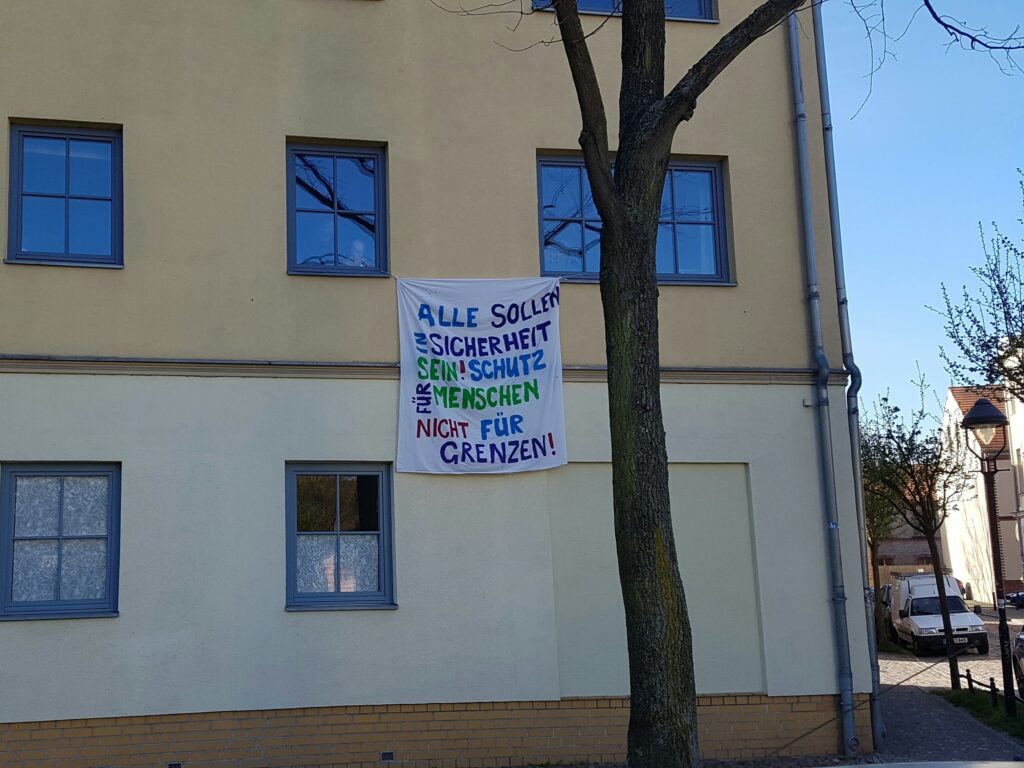 ALLE SOLLEN
IN SICHERHEIT
SEIN! SCHUTZ
FÜR MENSCHEN
NICHT FÜR
GRENZEN!